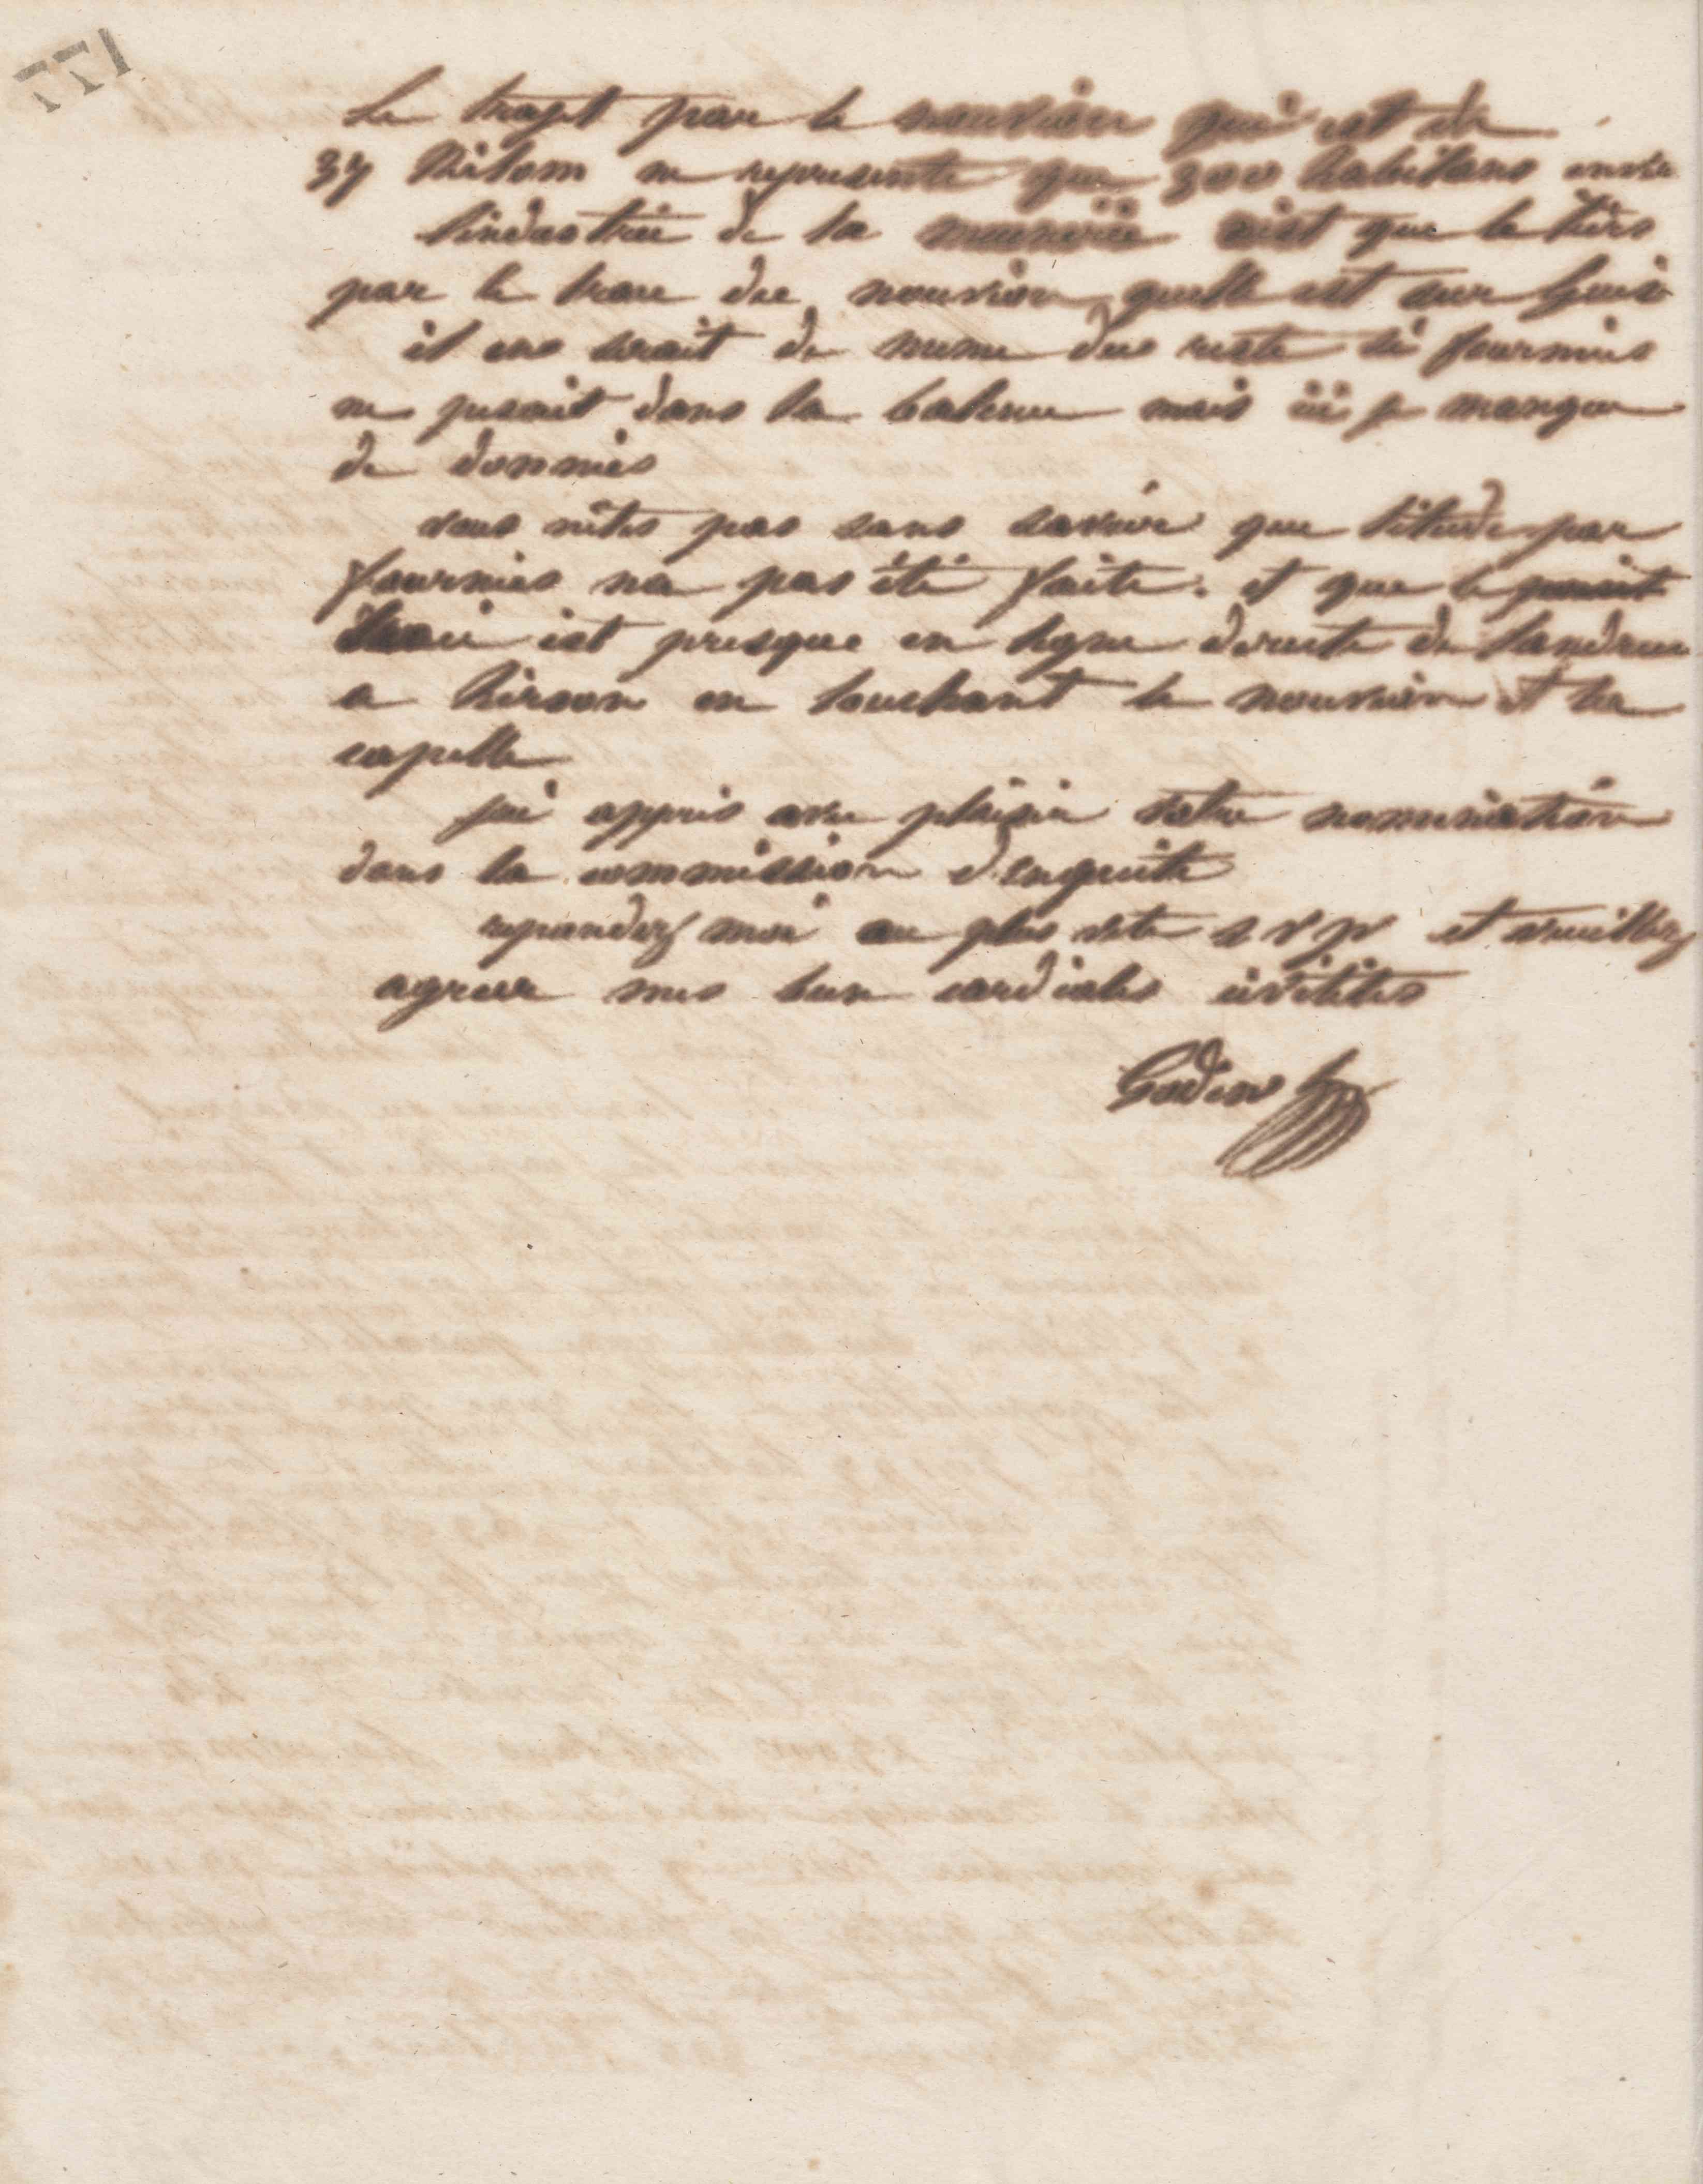 177
Le trajet par le nouvion qui est de
37 Kilom ne represente que 300 habitans
lindustrie de la est que le tiers
par le trace du nouvion quelle est sur Guise
il en serait de meme du reste si fourmies
ne pesait dans la balance mais ici je manque
de données
vous nêtes pas sans savoir que létude par
fourmies na pas été faite. et que le
tracé est presque en ligne directe de landrecies
a hirson en touchant le nouvion et la
capelle
jai appris avec plaisir votre nomination
dans la commission denquête
repondez moi au plus vite s v p et veuillez
agreer mes bien cordiales civilités
Godin